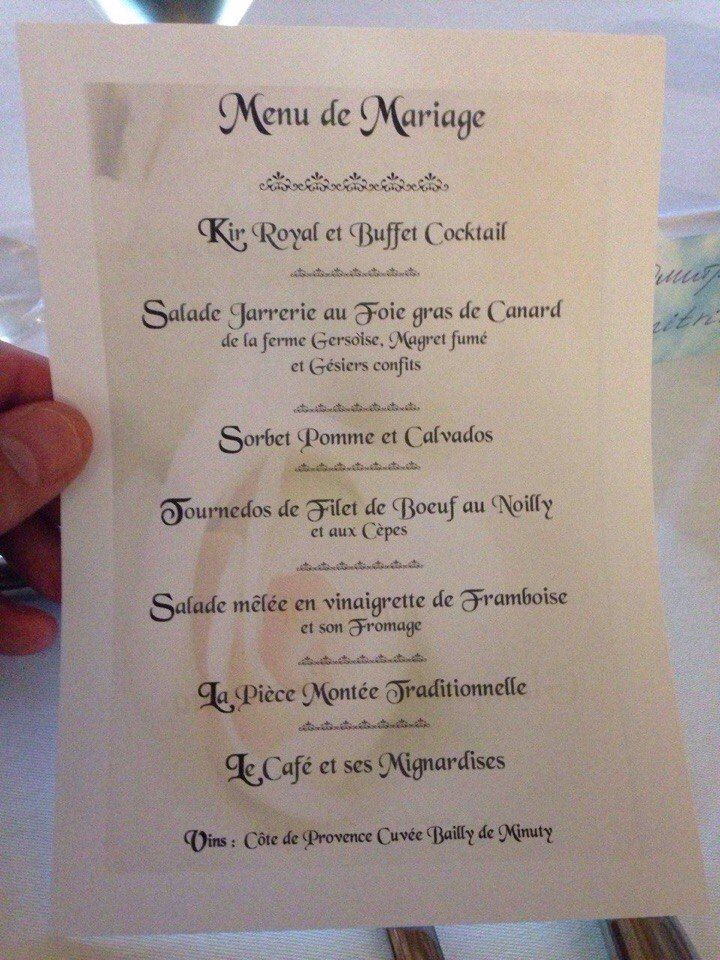 Menu de Mariage
Kir Royal et Buffet Cocktail
Salade Jarrerie au Foie gras de Canard
de la ferme Gersoise, Magret fumé
et Gésiers confits
Sorbet Pomme et Calvados
Tournedos de Filet de Boeuf au Noilly
et aux Cèpes
Salade mêlée en vinaigrette de Framboise
et son Fromage
La Pièce Montée Traditionnelle
Le Café et ses Mignardises
Vins : Côte de Provence Cuvée Bailly de Minuty